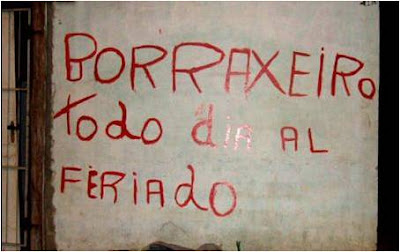 BORRAXEIRO
TODO DIA AL
FERIADO